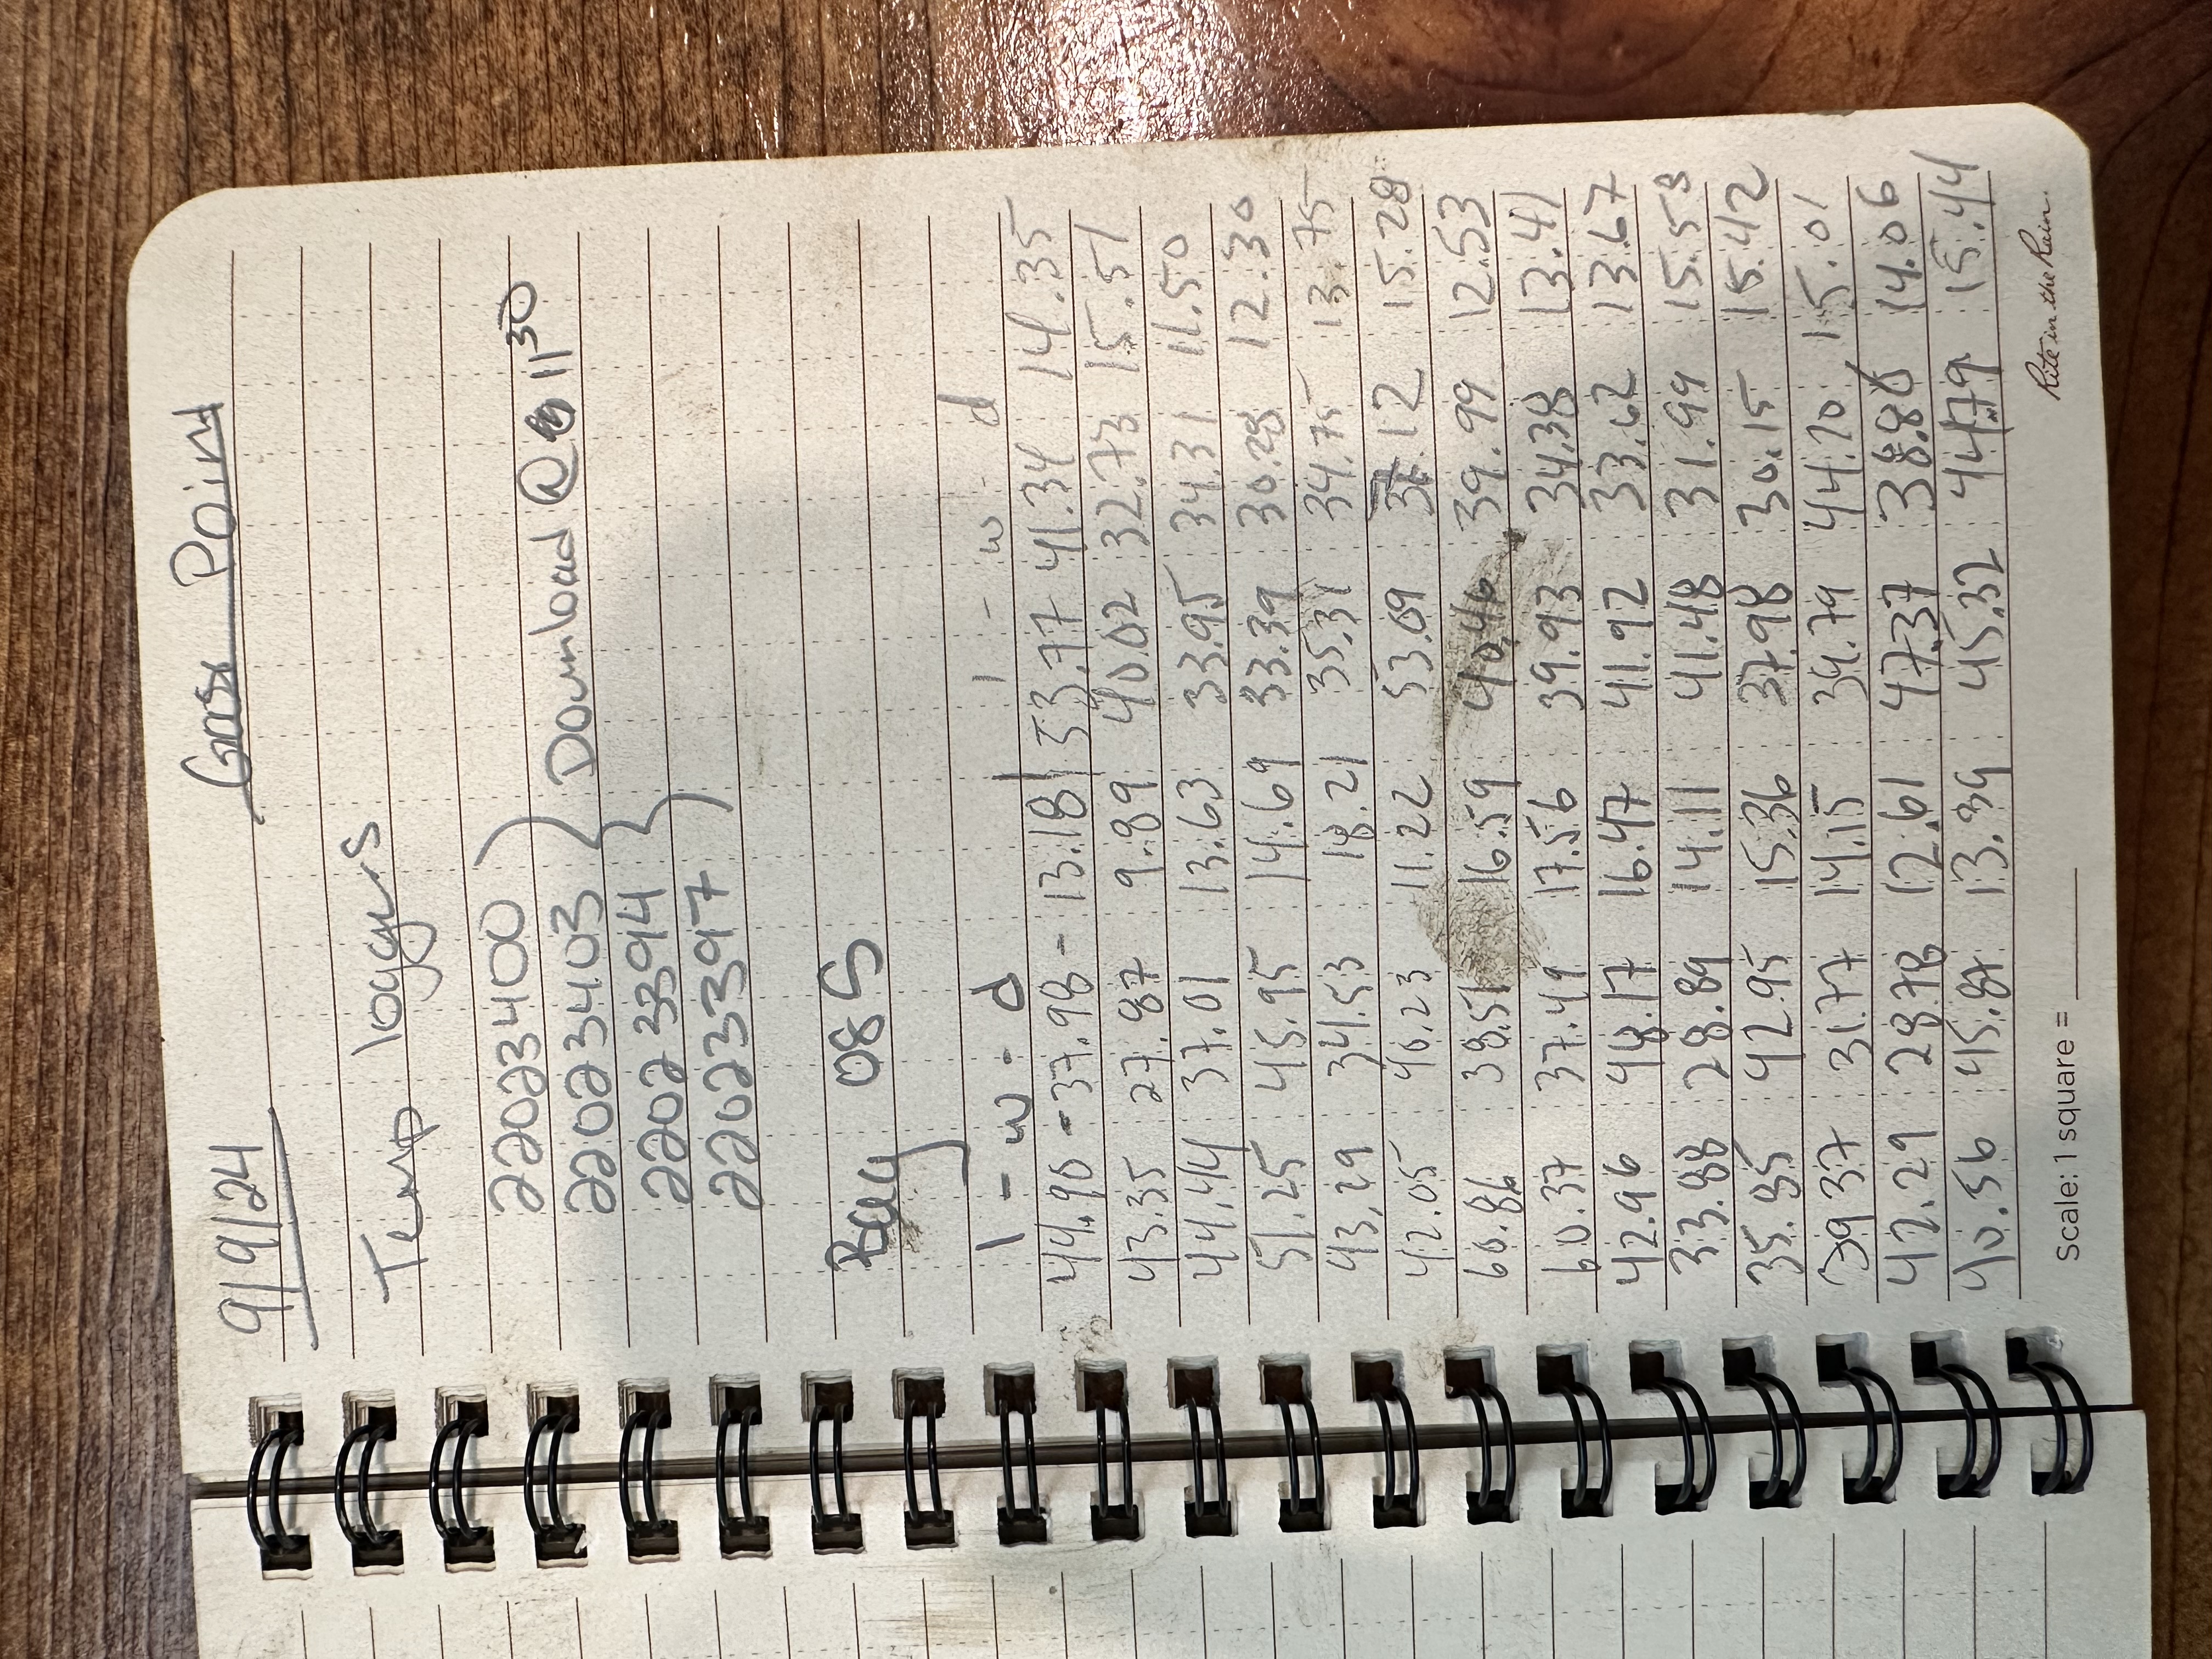 9/9/24 Goose Point
Temp loggers
22023400
22023403
22023394
22023397
Download @ 11³⁰
Bag 085
l - w - d l - w - d
44.90 - 37.98 - 13.18 | 53.77 41.34 14.35
43.35 27.87 9.89 40.02 32.73 15.51
44.44 37.01 13.63 33.95 34.31 11.50
51.25 45.95 14.69 33.39 30.28 12.30
43.29 34.53 18.21 35.31 34.75 13.75
42.05 40.23 11.22 53.09 12 15.28
60.86 38.51 16.59 40.46 39.99 12.53
60.37 37.49 17.56 39.93 34.38 13.41
42.96 16.47 41.92 33.62 13.67
33.88 28.89 14.11 41.48 31.99 15.58
35.85 42.95 15.36 37.98 30.15 15.42
39 37 31.77 14.15 39.79 15.01
42.29 28.78 12.61 47.37 38.86 14.06
40.56 45.87 13.39 45.32 44.79 15.44
Scale: 1 square = ______
Rite in the Rain.